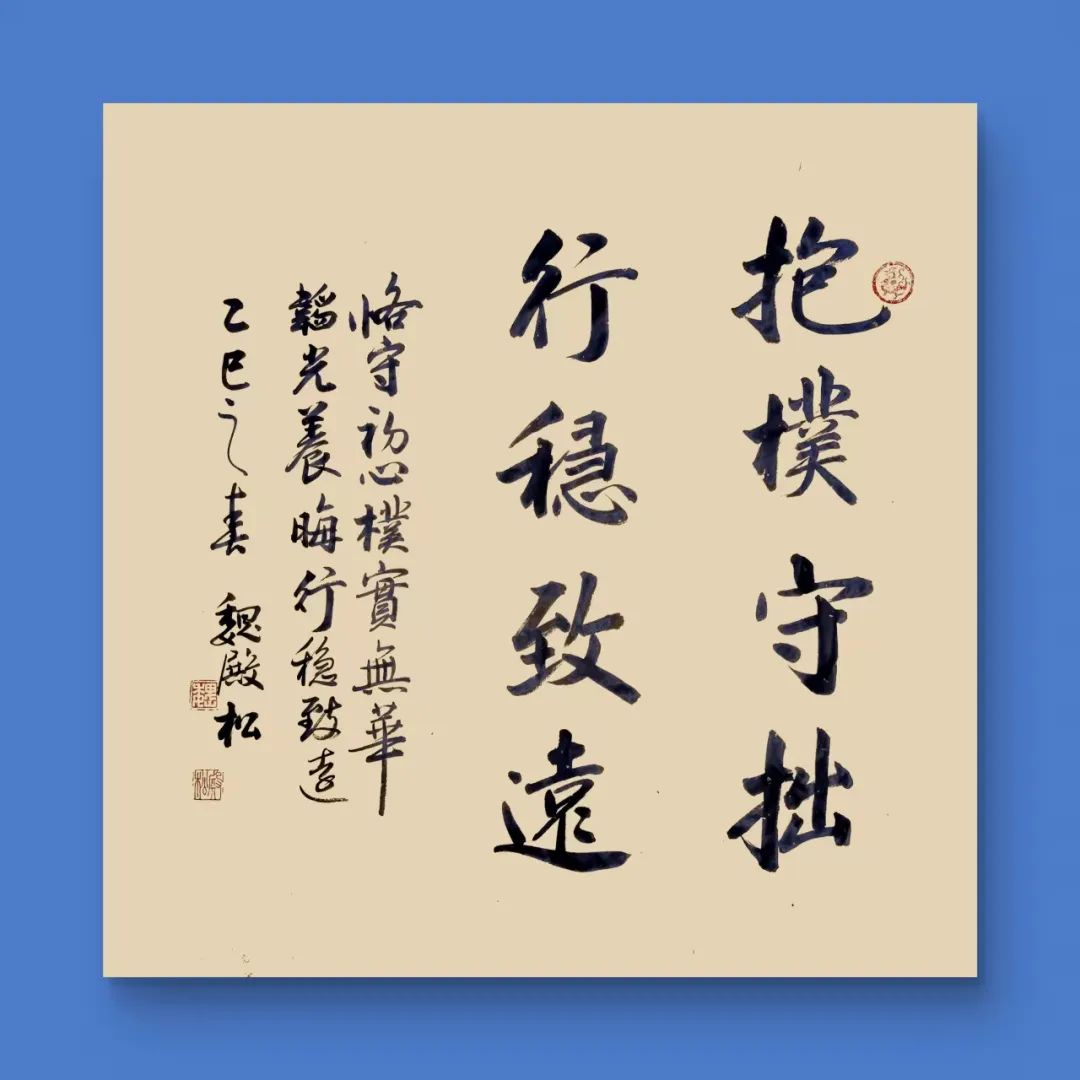 抱樸守拙
行穩致遠
恪守初心樸實無華
韜光養晦行稳致遠
乙巳之春 魏殿松